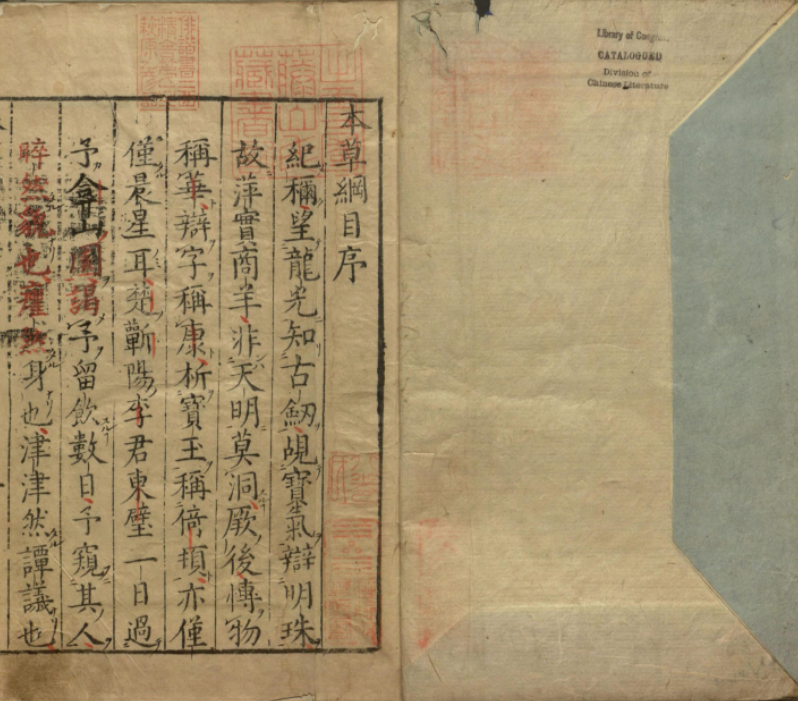 Library of
CATALOGUED
Division of
Chinese Literature
本草綱目序
紀稱望龍光知古劒覘寶氣辯明珠
故萍實商羊非天明莫洞厥後博物
稱華辯字稱康析寶玉稱倚頓亦僅
僅晨星耳楚蘄陽李君東璧一日過
予弇山園謁予留飲數日予窺其人
睟然貌也癯然身也津津然譚議也